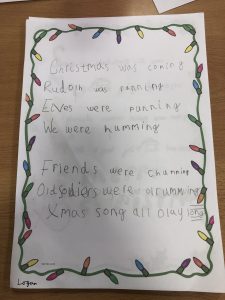 Christmas was coming
Rudolph was running
Elves were running
We were humming
Friends were
Old soldiers were drumming
Xmas song all day long
Logan